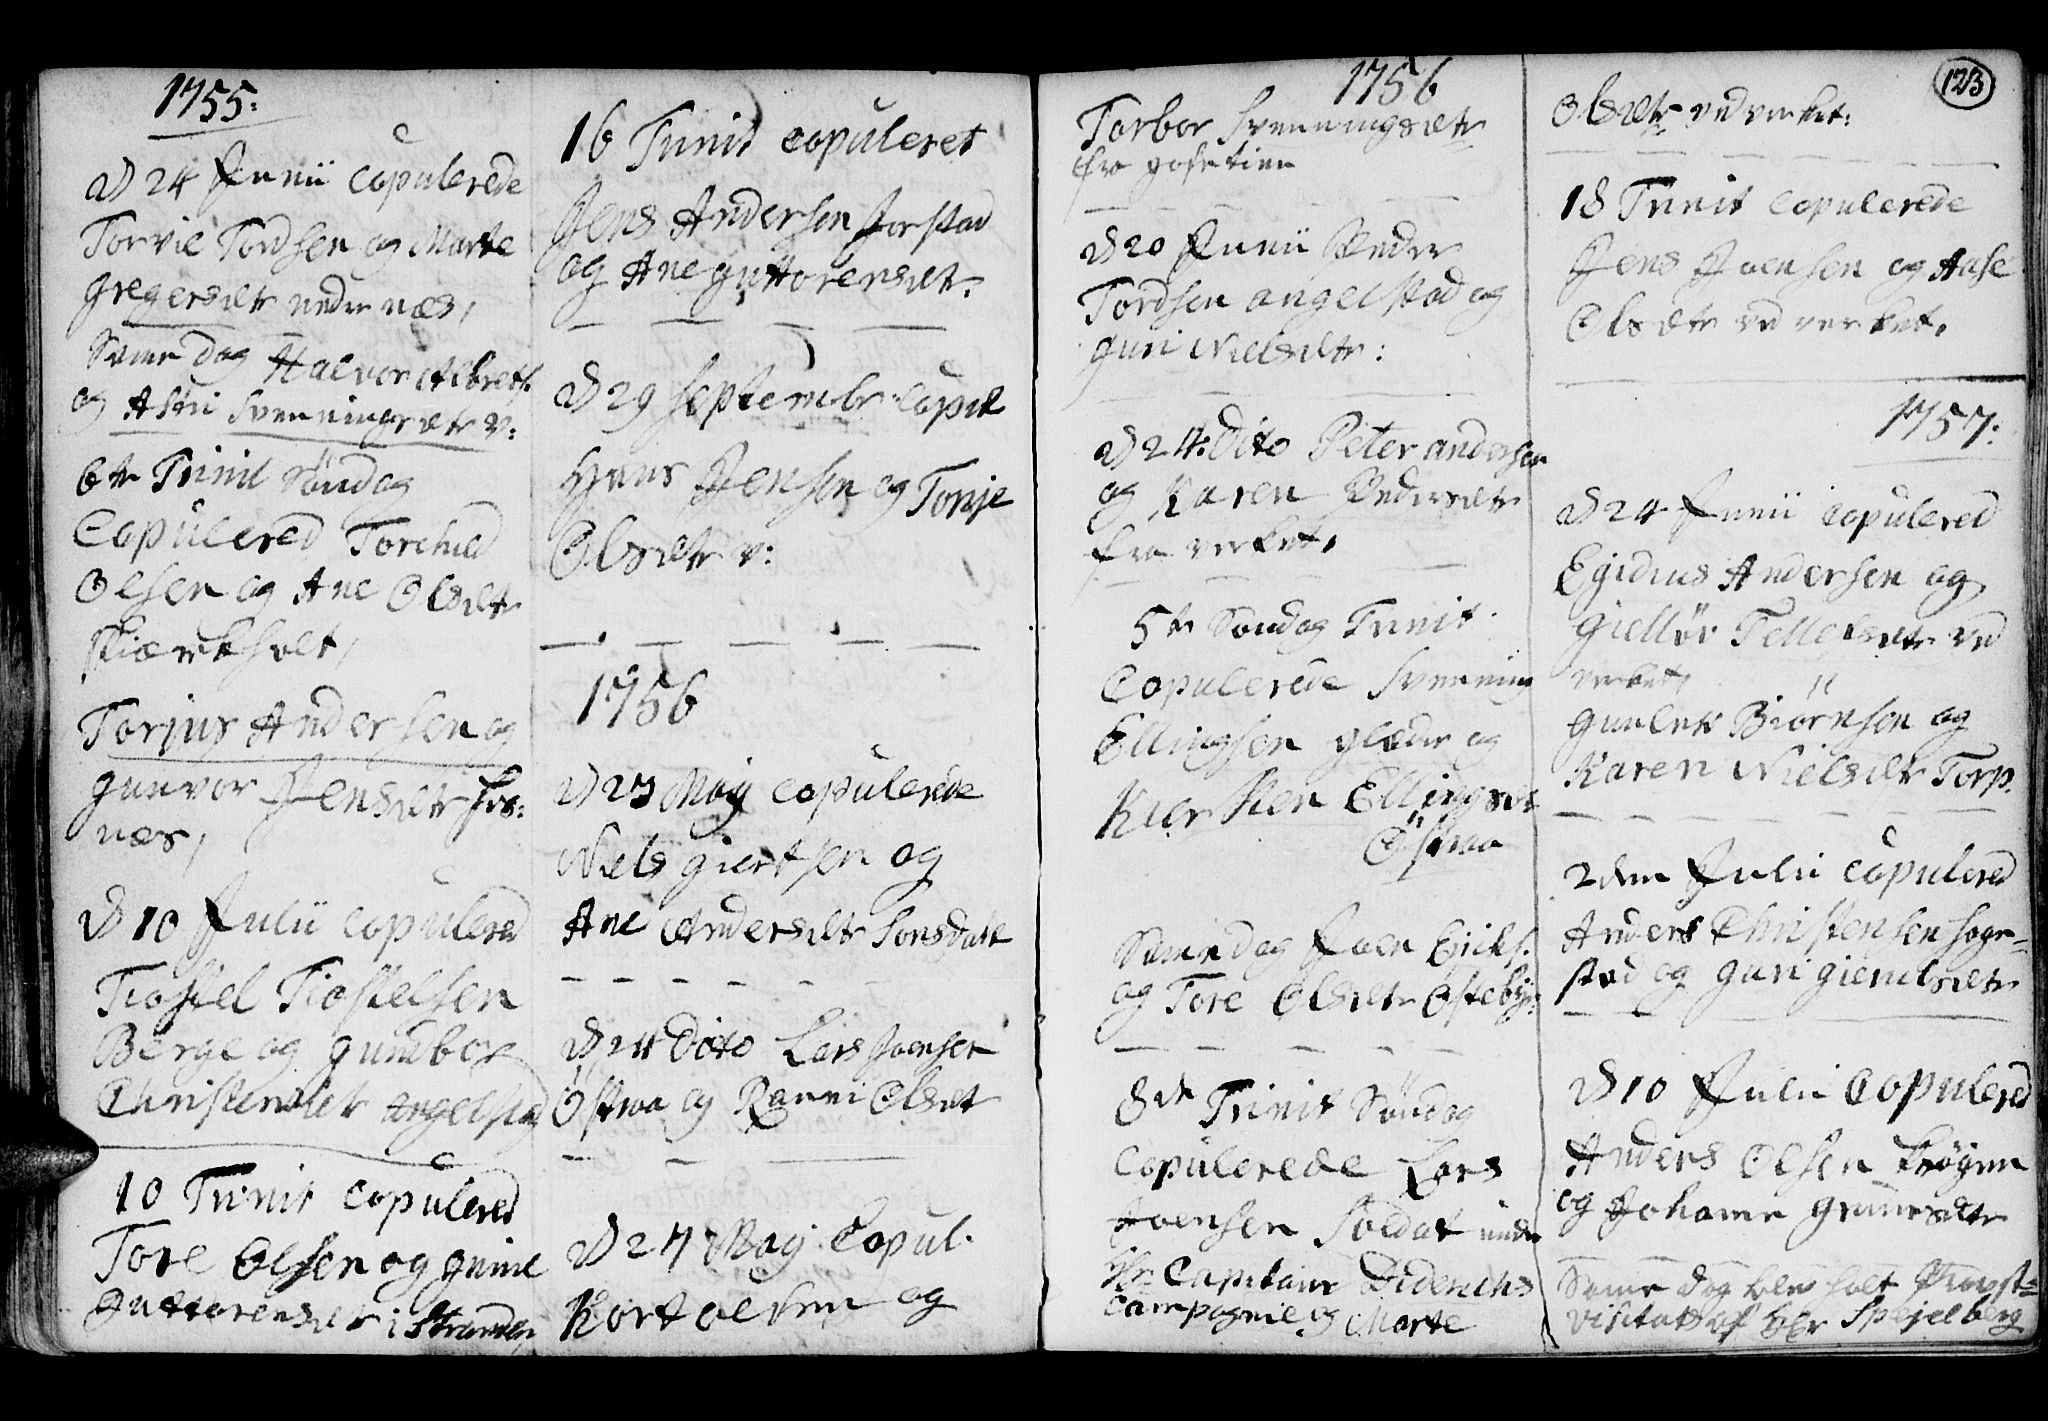 1755:
D 24 Junii Copulerede
Torvil Tordsen og Marte
Gregersdtr nedenæs,
Same dag Halvor Albrets.
og Astri Svenningsdtr v:
6te Trinit Søndag
Copulered Torchild
Olsen og Ane Olsdtr
skiærkholt,
Torjus Andersen og
Gunvor Jensdtr
næs,
D 10 Julii copulered
Kiostel Kiostelsen
Berge og Gundbor
Christensdtr Angelstad
10 Trinit copulered
Tore Olsen og
Guttorensdtr i Stranden
16 Trinit copuleret
Jens Andersen Jorstad
og Ane Guttorensdtr.
D 29 Septembr. Copul
Hans Jensen og Tonje
Olsdtr v:
1756
D 23 May copulerede
Niels giertsen og
Ane Andersdtr Songdale
D 24 Dito Lars Joensen
Østraa og Ranni Olsdt
D 27 May Copul.
Kort olsen og
1756
Torbor Svenningsdtr
fra
D 20 Junii Peder
Tordsen angelstad og
Guri Nielsdtr:
D 24. Dito Peter andersen
og Karen Pedersdtr
fra verket,
5te Søndag Trinit.
Copulerede Svenning
Ellingsen glæder og
Kiersten Ellingsdt
Østraa
Same dag Joen Erichs.
og Tore Olsdtr Østebye:
8de Trinit Søndag
Copulerede Lars
Joensen Soldat under
Hr. Capitain Diderichs
Campagnie og Marte
123
Olsdtr ved verket:
18 Trinit copulerede
Jens Joensen og Aase
Olsdtr ved verket.
1757:
D 24 Junii copulered
Egidius Andersen og
Giellør Tellefsdtr ved
verket,
Gunlek Biørnsen og
Karen Nielsdtr Torp.
2den Julii copulered
Anders Christensen Soge-
stad og Guri
D 10 Julii Copulered
Anders Olsen Krøgen
og Johanne
Same dag blev holt Provst-
visitatz af Hr Spejelberg